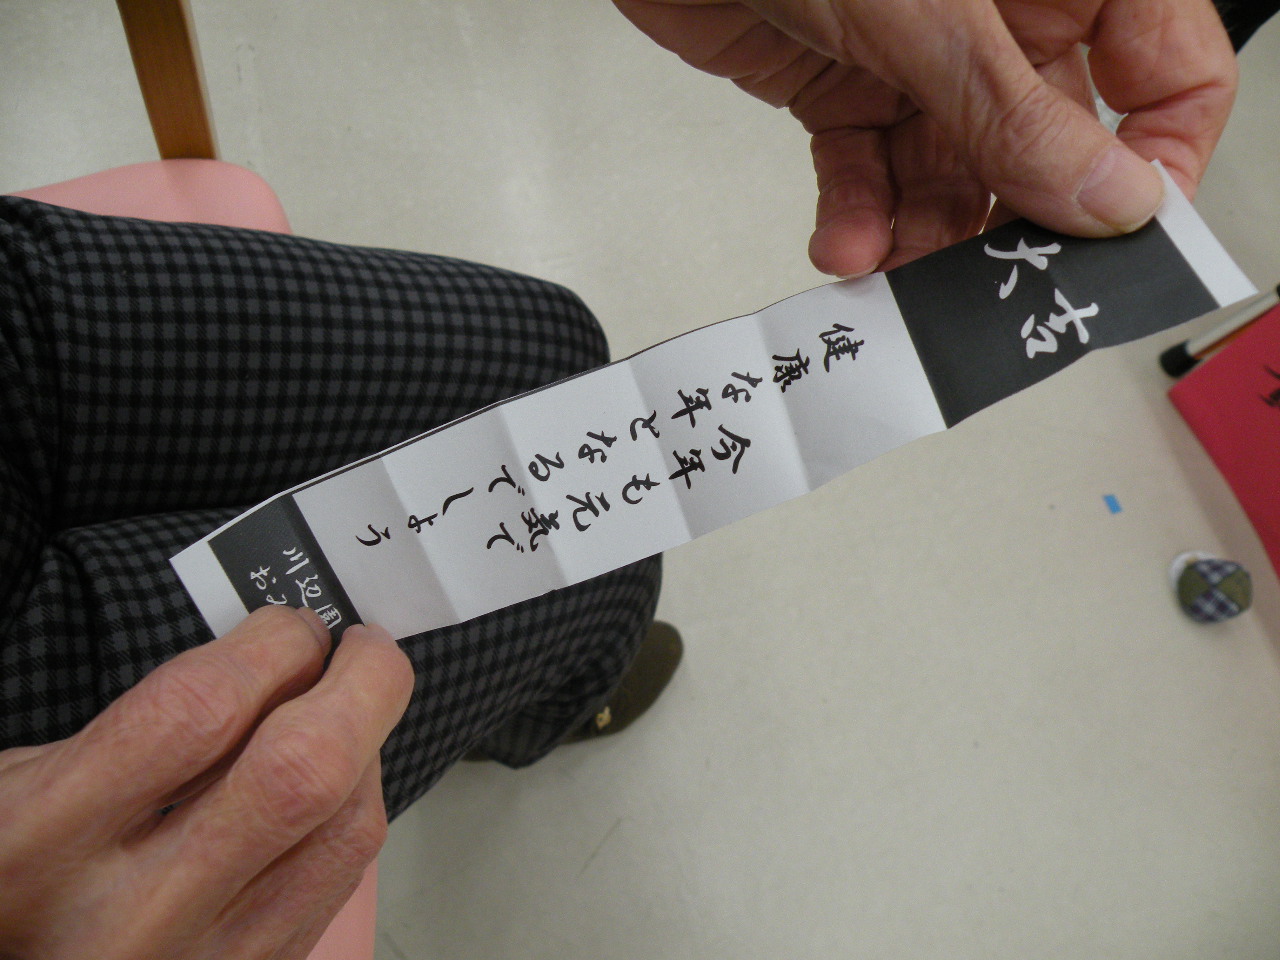 大吉
今年も元気で
健康な年となるでしょう
川辺園
おみ